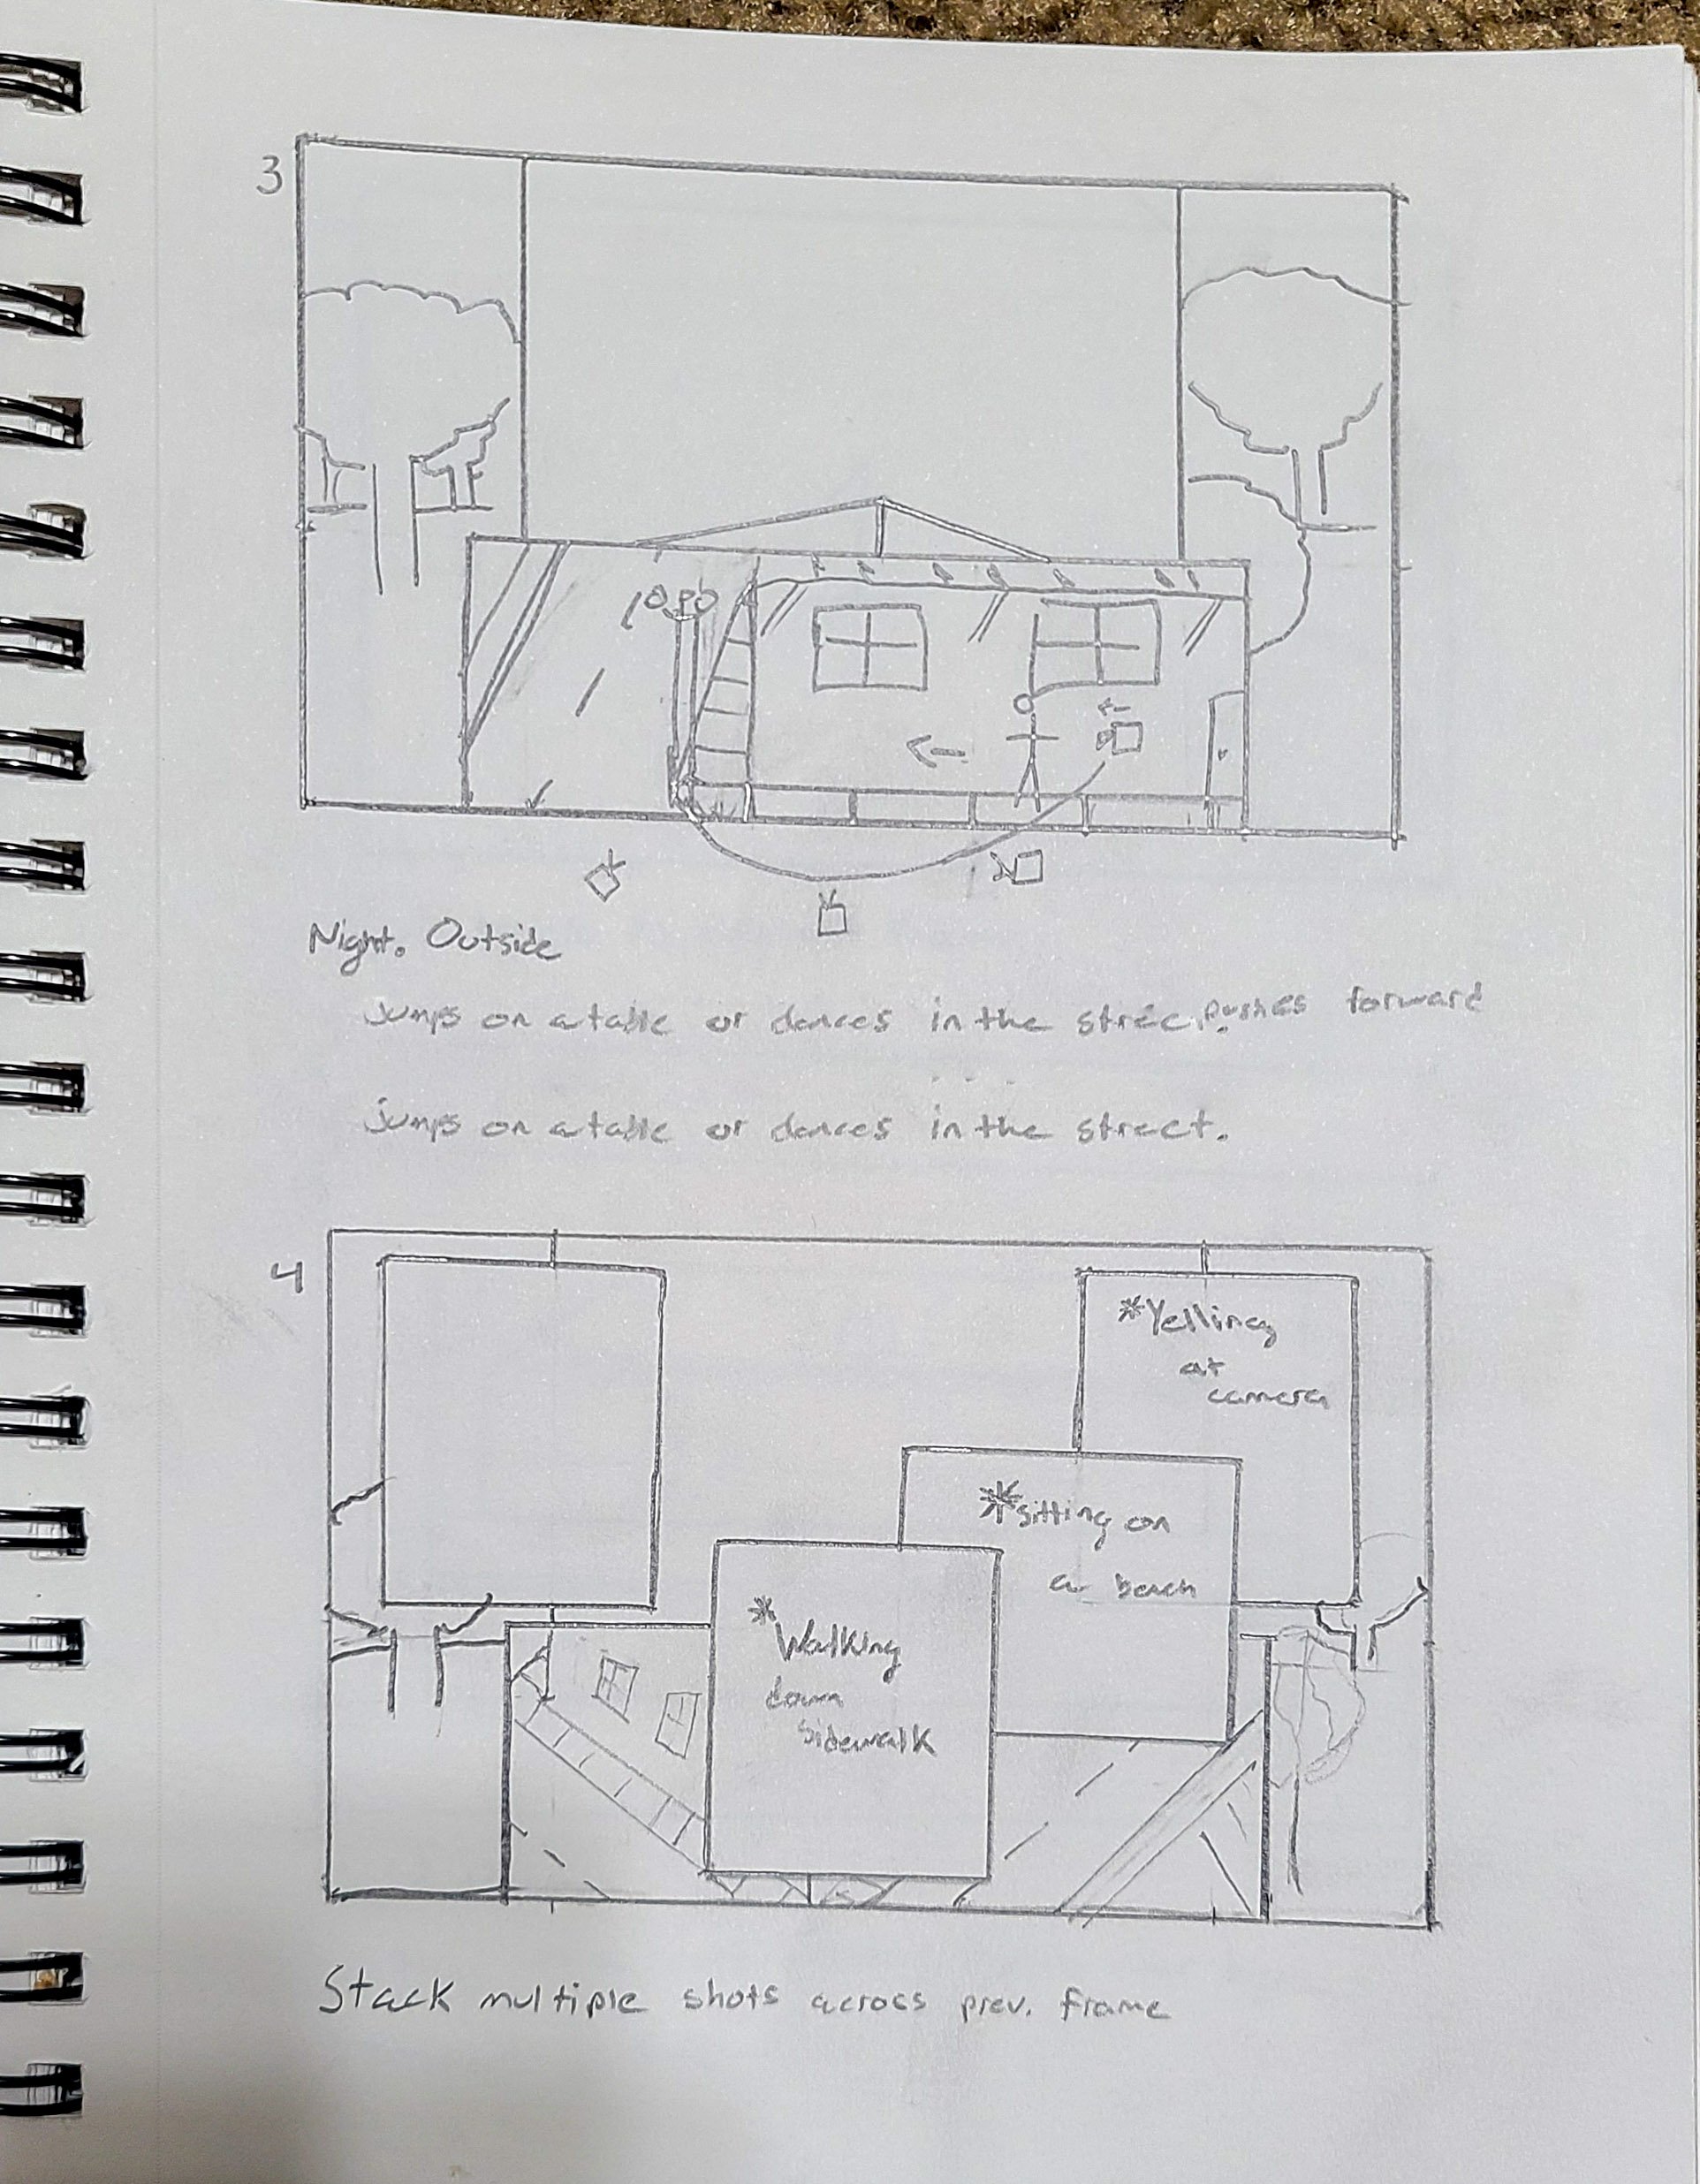 3
Night. Outside
Jumps on a table or dances in the stree. pushes forward
jumps on a table or dances in the street.
4
*Yelling
at
camera
*sitting on
a beach
*Walking
down
sidewalk
Stack multiple shots across prev. frame